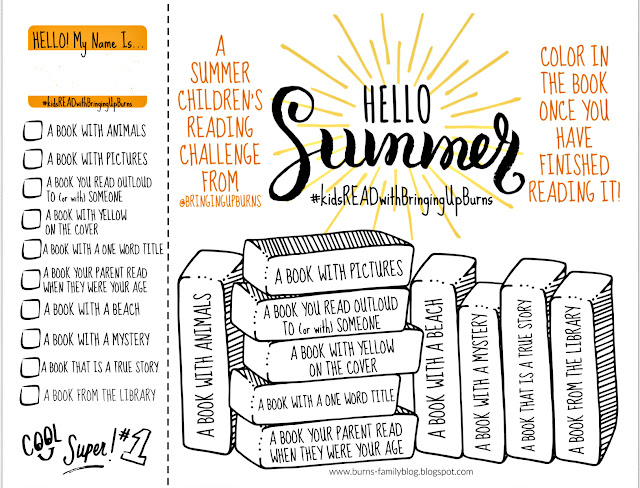 HELLO! My Name Is...
#kidsREADwithBringingUpBurns
A BOOK WITH ANIMALS
A BOOK WITH PICTURES
A BOOK YOU READ OUTLOUD
TO (or with) SOMEONE
A BOOK WITH YELLOW
ON THE COVER
A BOOK WITH A ONE WORD TITLE
A BOOK YOUR PARENT READ
WHEN THEY WERE YOUR AGE
A BOOK WITH A BEACH
A BOOK WITH A MYSTERY
A BOOK THAT IS A TRUE STORY
A BOOK FROM THE LIBRARY
COOL
Super!
#1
A
SUMMER
CHILDREN'S
READING
CHALLENGE
FROM
@BRINGINGUPBURNS
HELLO
Summer
#kidsREADwithBringingUpBurns
COLOR IN
THE BOOK
ONCE YOU
HAVE
FINISHED
READING IT!
A BOOK WITH ANIMALS
A BOOK WITH PICTURES
A BOOK YOU READ OUTLOUD
TO (or with) SOMEONE
A BOOK WITH YELLOW
ON THE COVER
A BOOK WITH A ONE WORD TITLE
A BOOK YOUR PARENT READ
WHEN THEY WERE YOUR AGE
A BOOK WITH A BEACH
A BOOK WITH A MYSTERY
A BOOK THAT IS A TRUE STORY
A BOOK FROM THE LIBRARY
www.burns-familyblog.blogspot.com